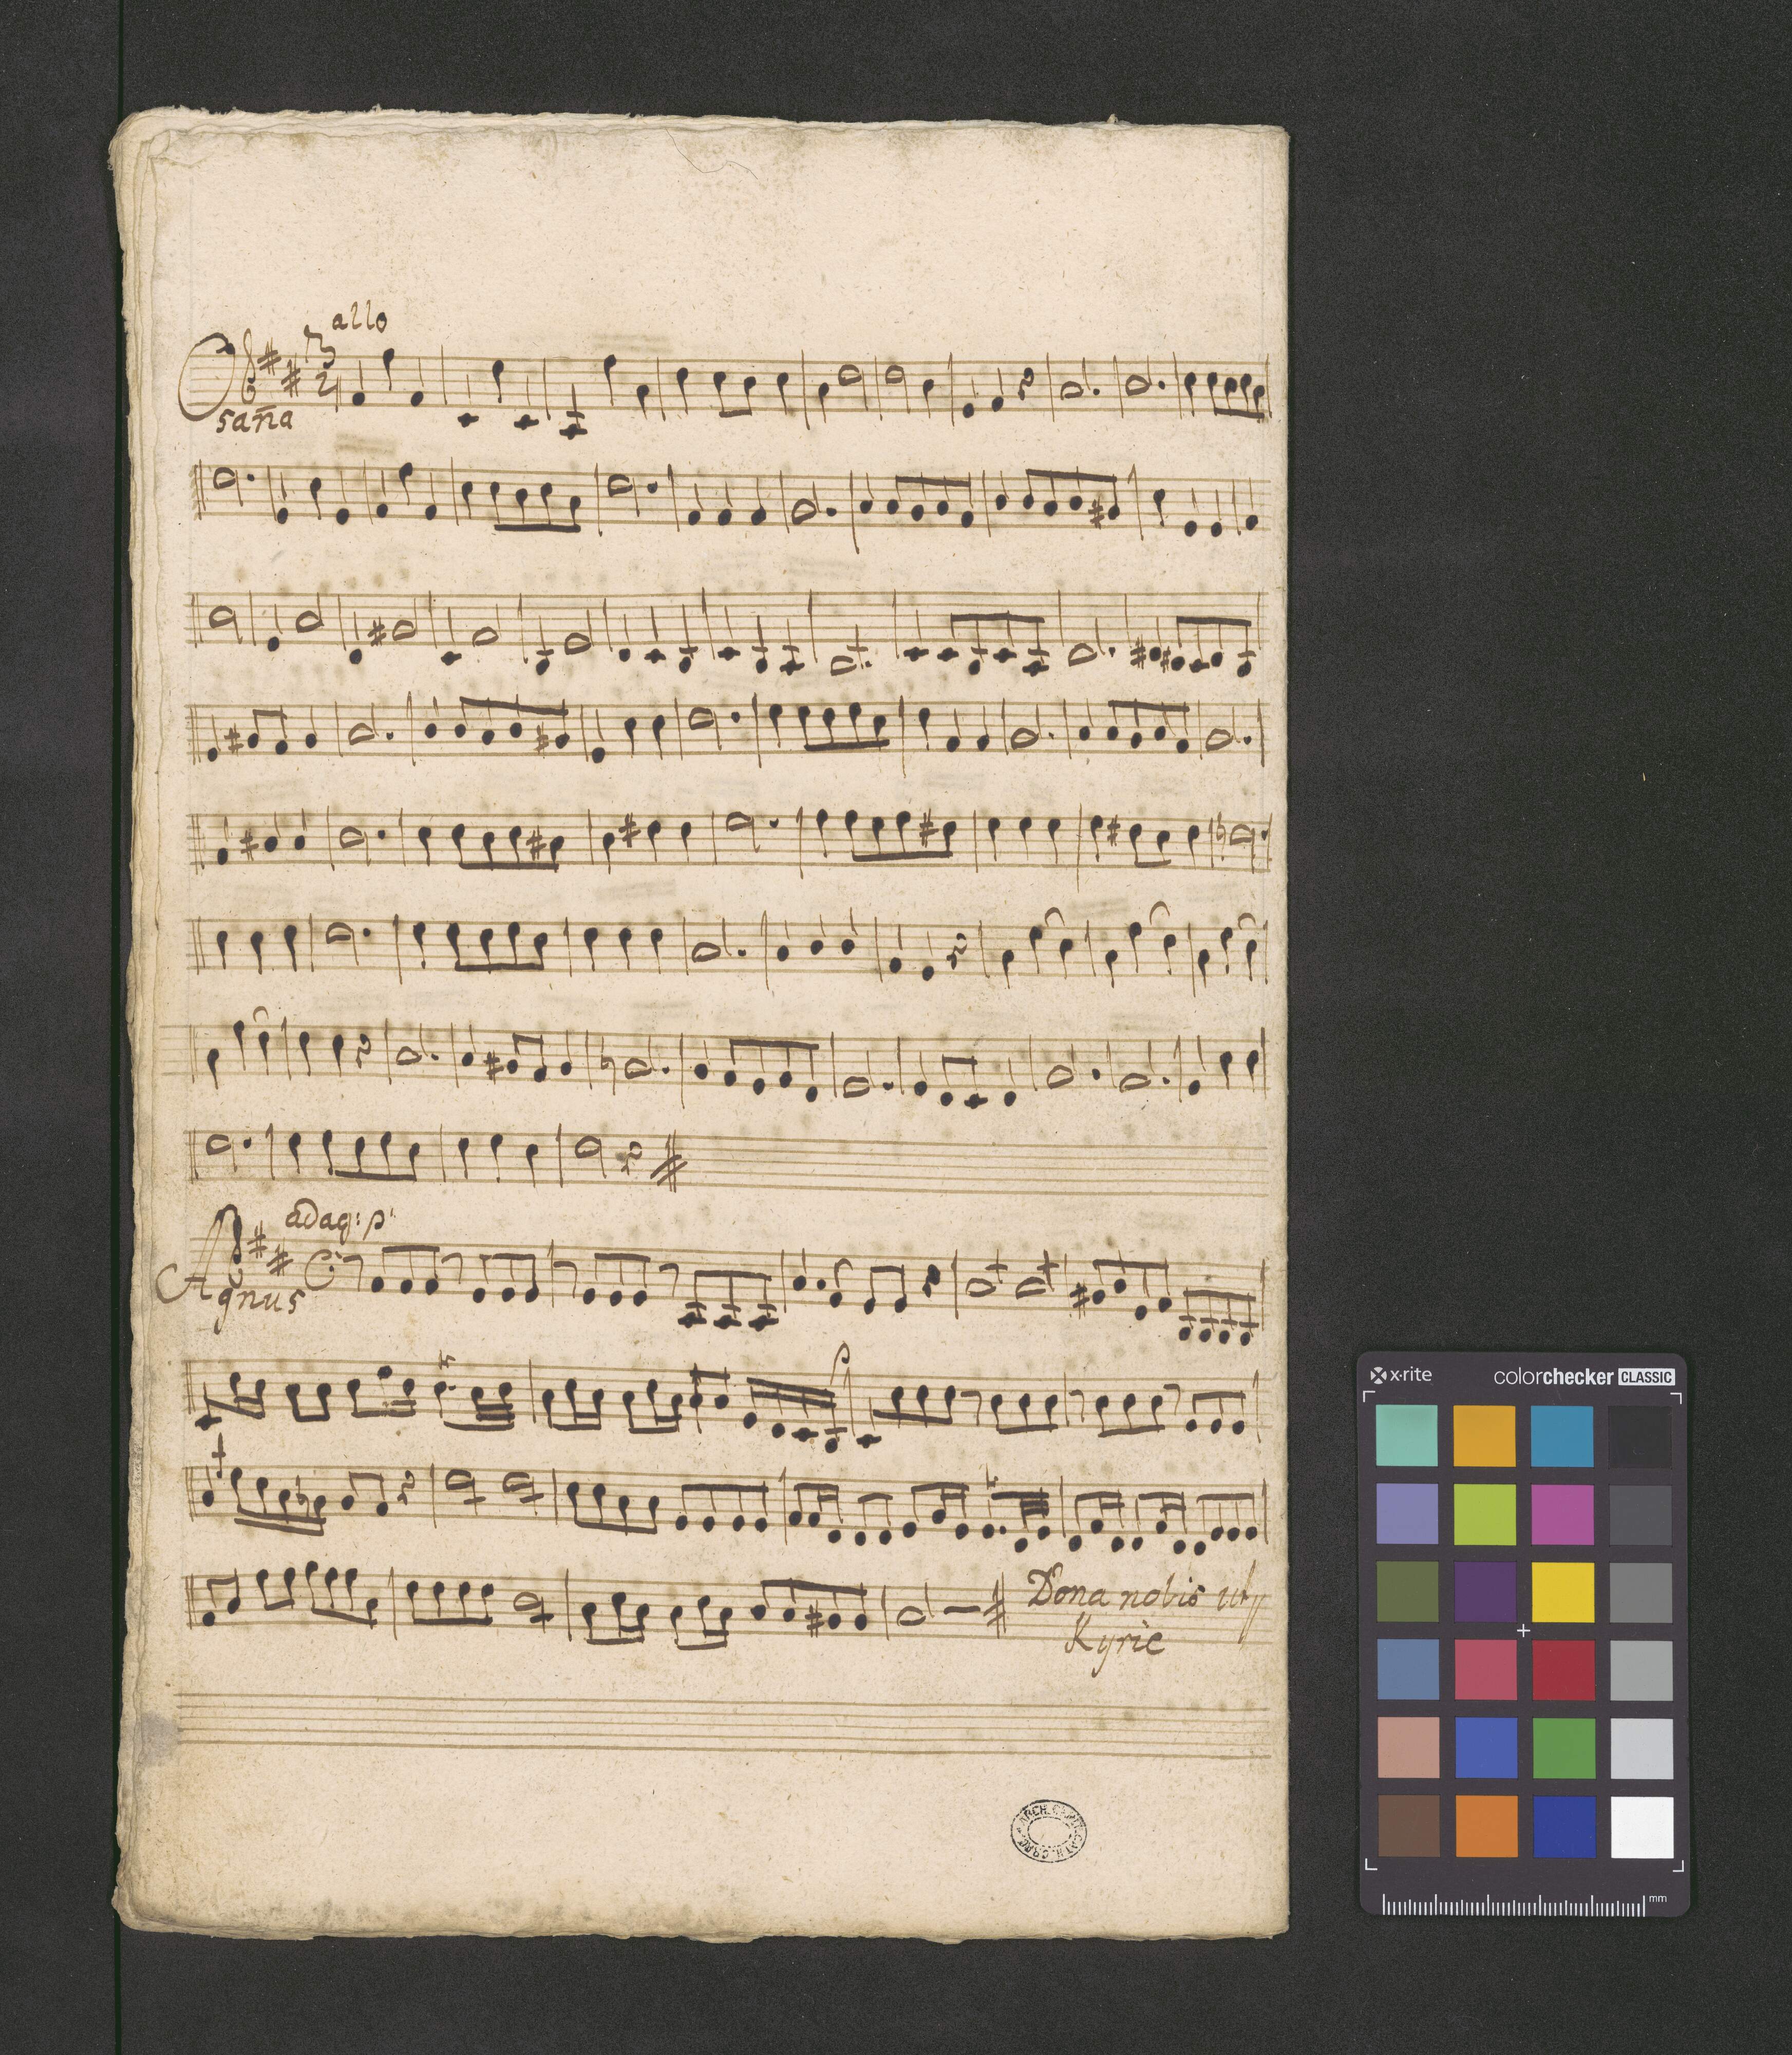 allo
Osaña
adag: p:
Agnus
Dona nobis ut
Kyrie
x-rite
colorchecker CLASSIC
mm